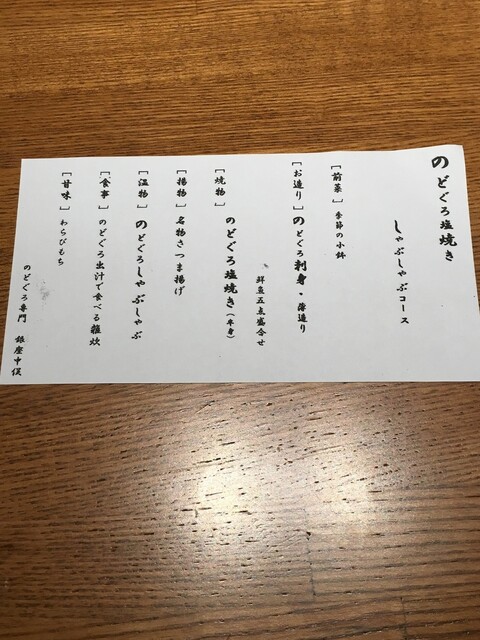 のどぐろ塩焼き
しゃぶしゃぶコース
［前菜］季節の小鉢
［お造り］のどぐろ刺身・薄造り
鮮魚五点盛合せ
［焼物］のどぐろ塩焼き（半身）
［揚物］名物さつま揚げ
［温物］のどぐろしゃぶしゃぶ
［食事］のどぐろ出汁で食べる雑炊
［甘味］わらびもち
のどぐろ専門 銀座中俣